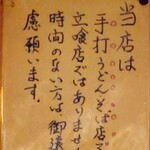 当店は
手打うどんそば店で
立喰店ではありませ
時間のない方は、御遠
慮願います。